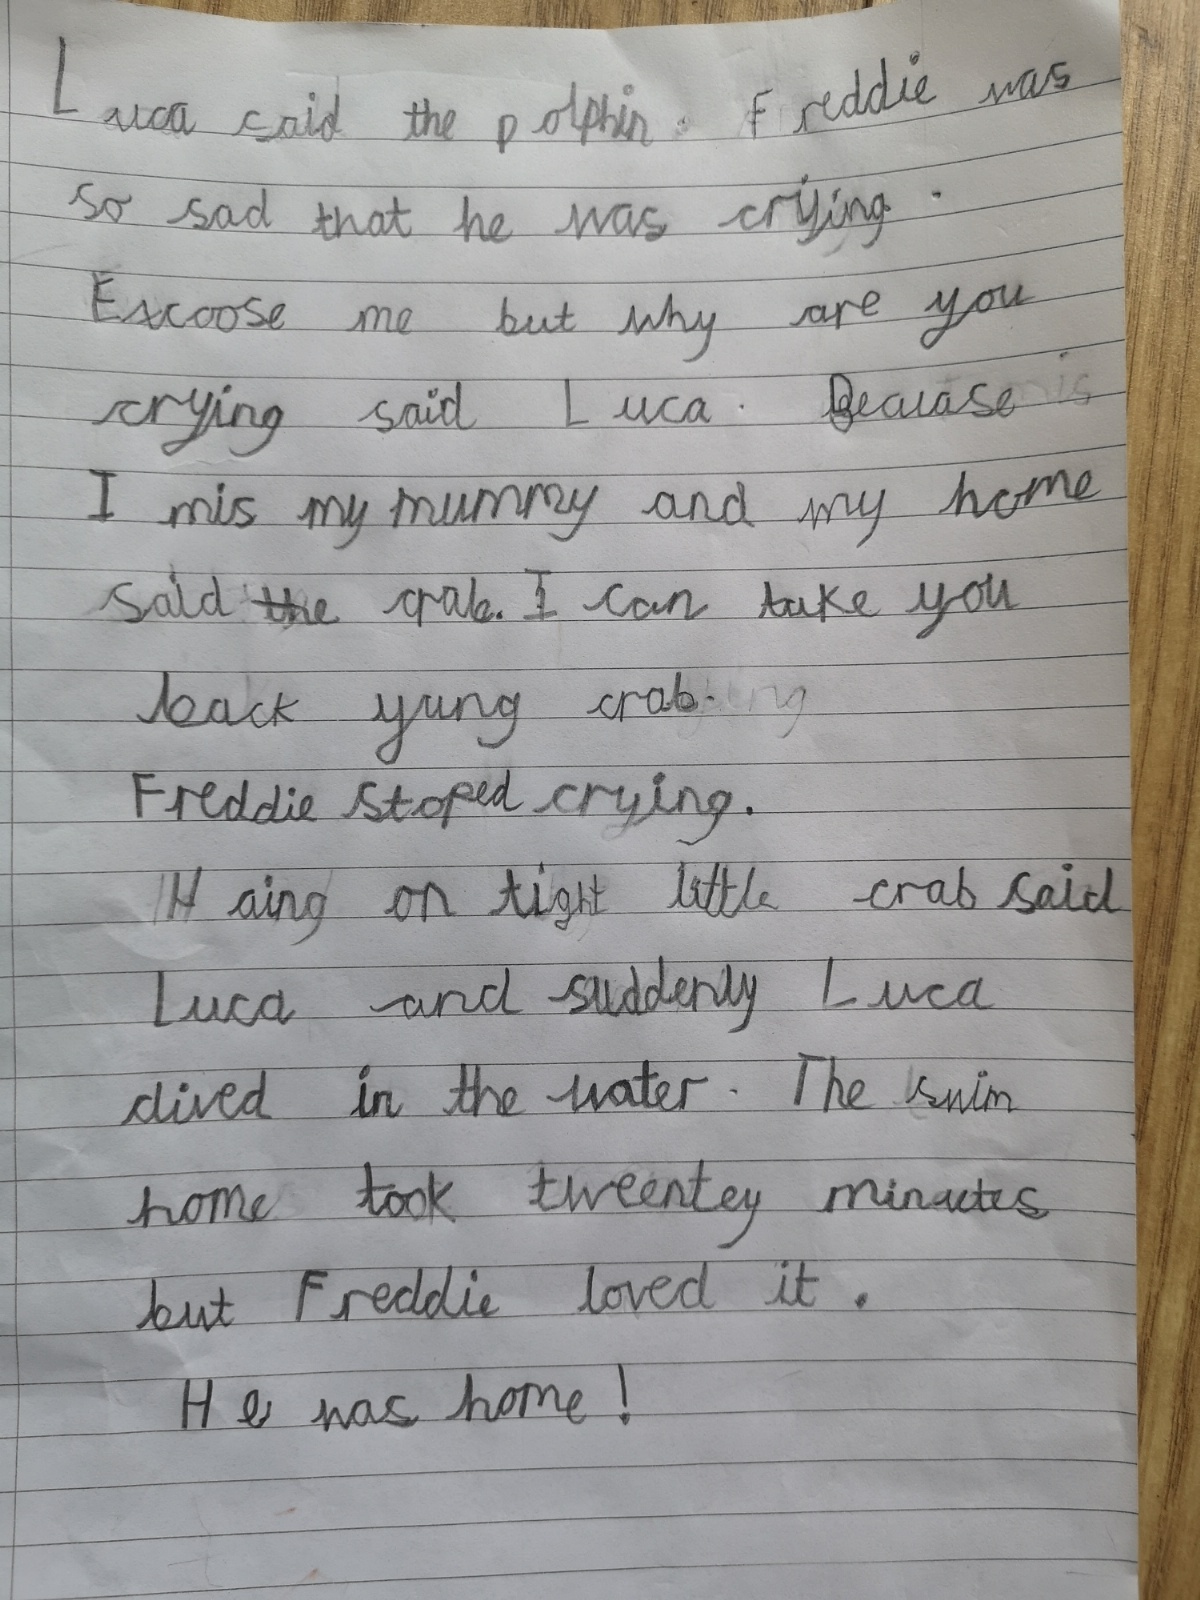 Luca said the polphin. Freddie was
so sad that he was criying.
Excoose me but why are you
crying said Luca. Becuase
I mis my mummy and my home
said the crab. I can take you
back yung crab.
Freddie stoped crying.
Haing on tight little crab said
Luca and suddenly Luca
dived in the water. The swim
home took tweentey minuctes
but Freddie loved it.
He was home!